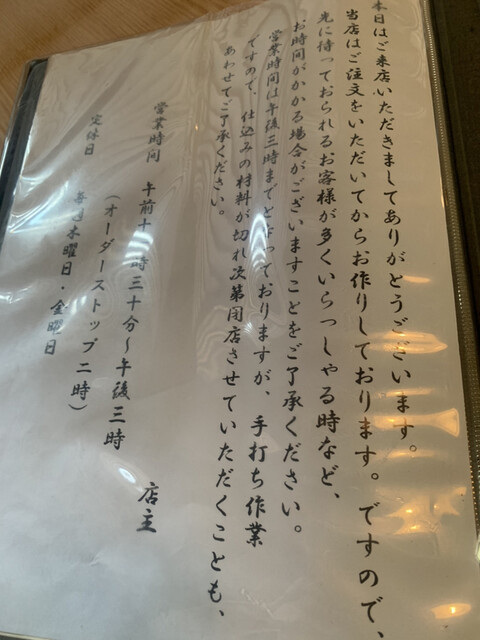 本日はご来店いただきましてありがとうございます。
当店はご注文をいただいてからお作りしております。ですので、
先に待っておられるお客様が多くいらっしゃる時など、
お時間がかかる場合がございますことをご了承ください。
営業時間は午後三時までとなっておりますが、手打ち作業
ですので、仕込みの材料が切れ次第閉店させていただくことも、
あわせてご了承ください。
店主
営業時間 午前十一時三十分～午後三時
(オーダーストップ二時)
定休日 毎週木曜日・金曜日